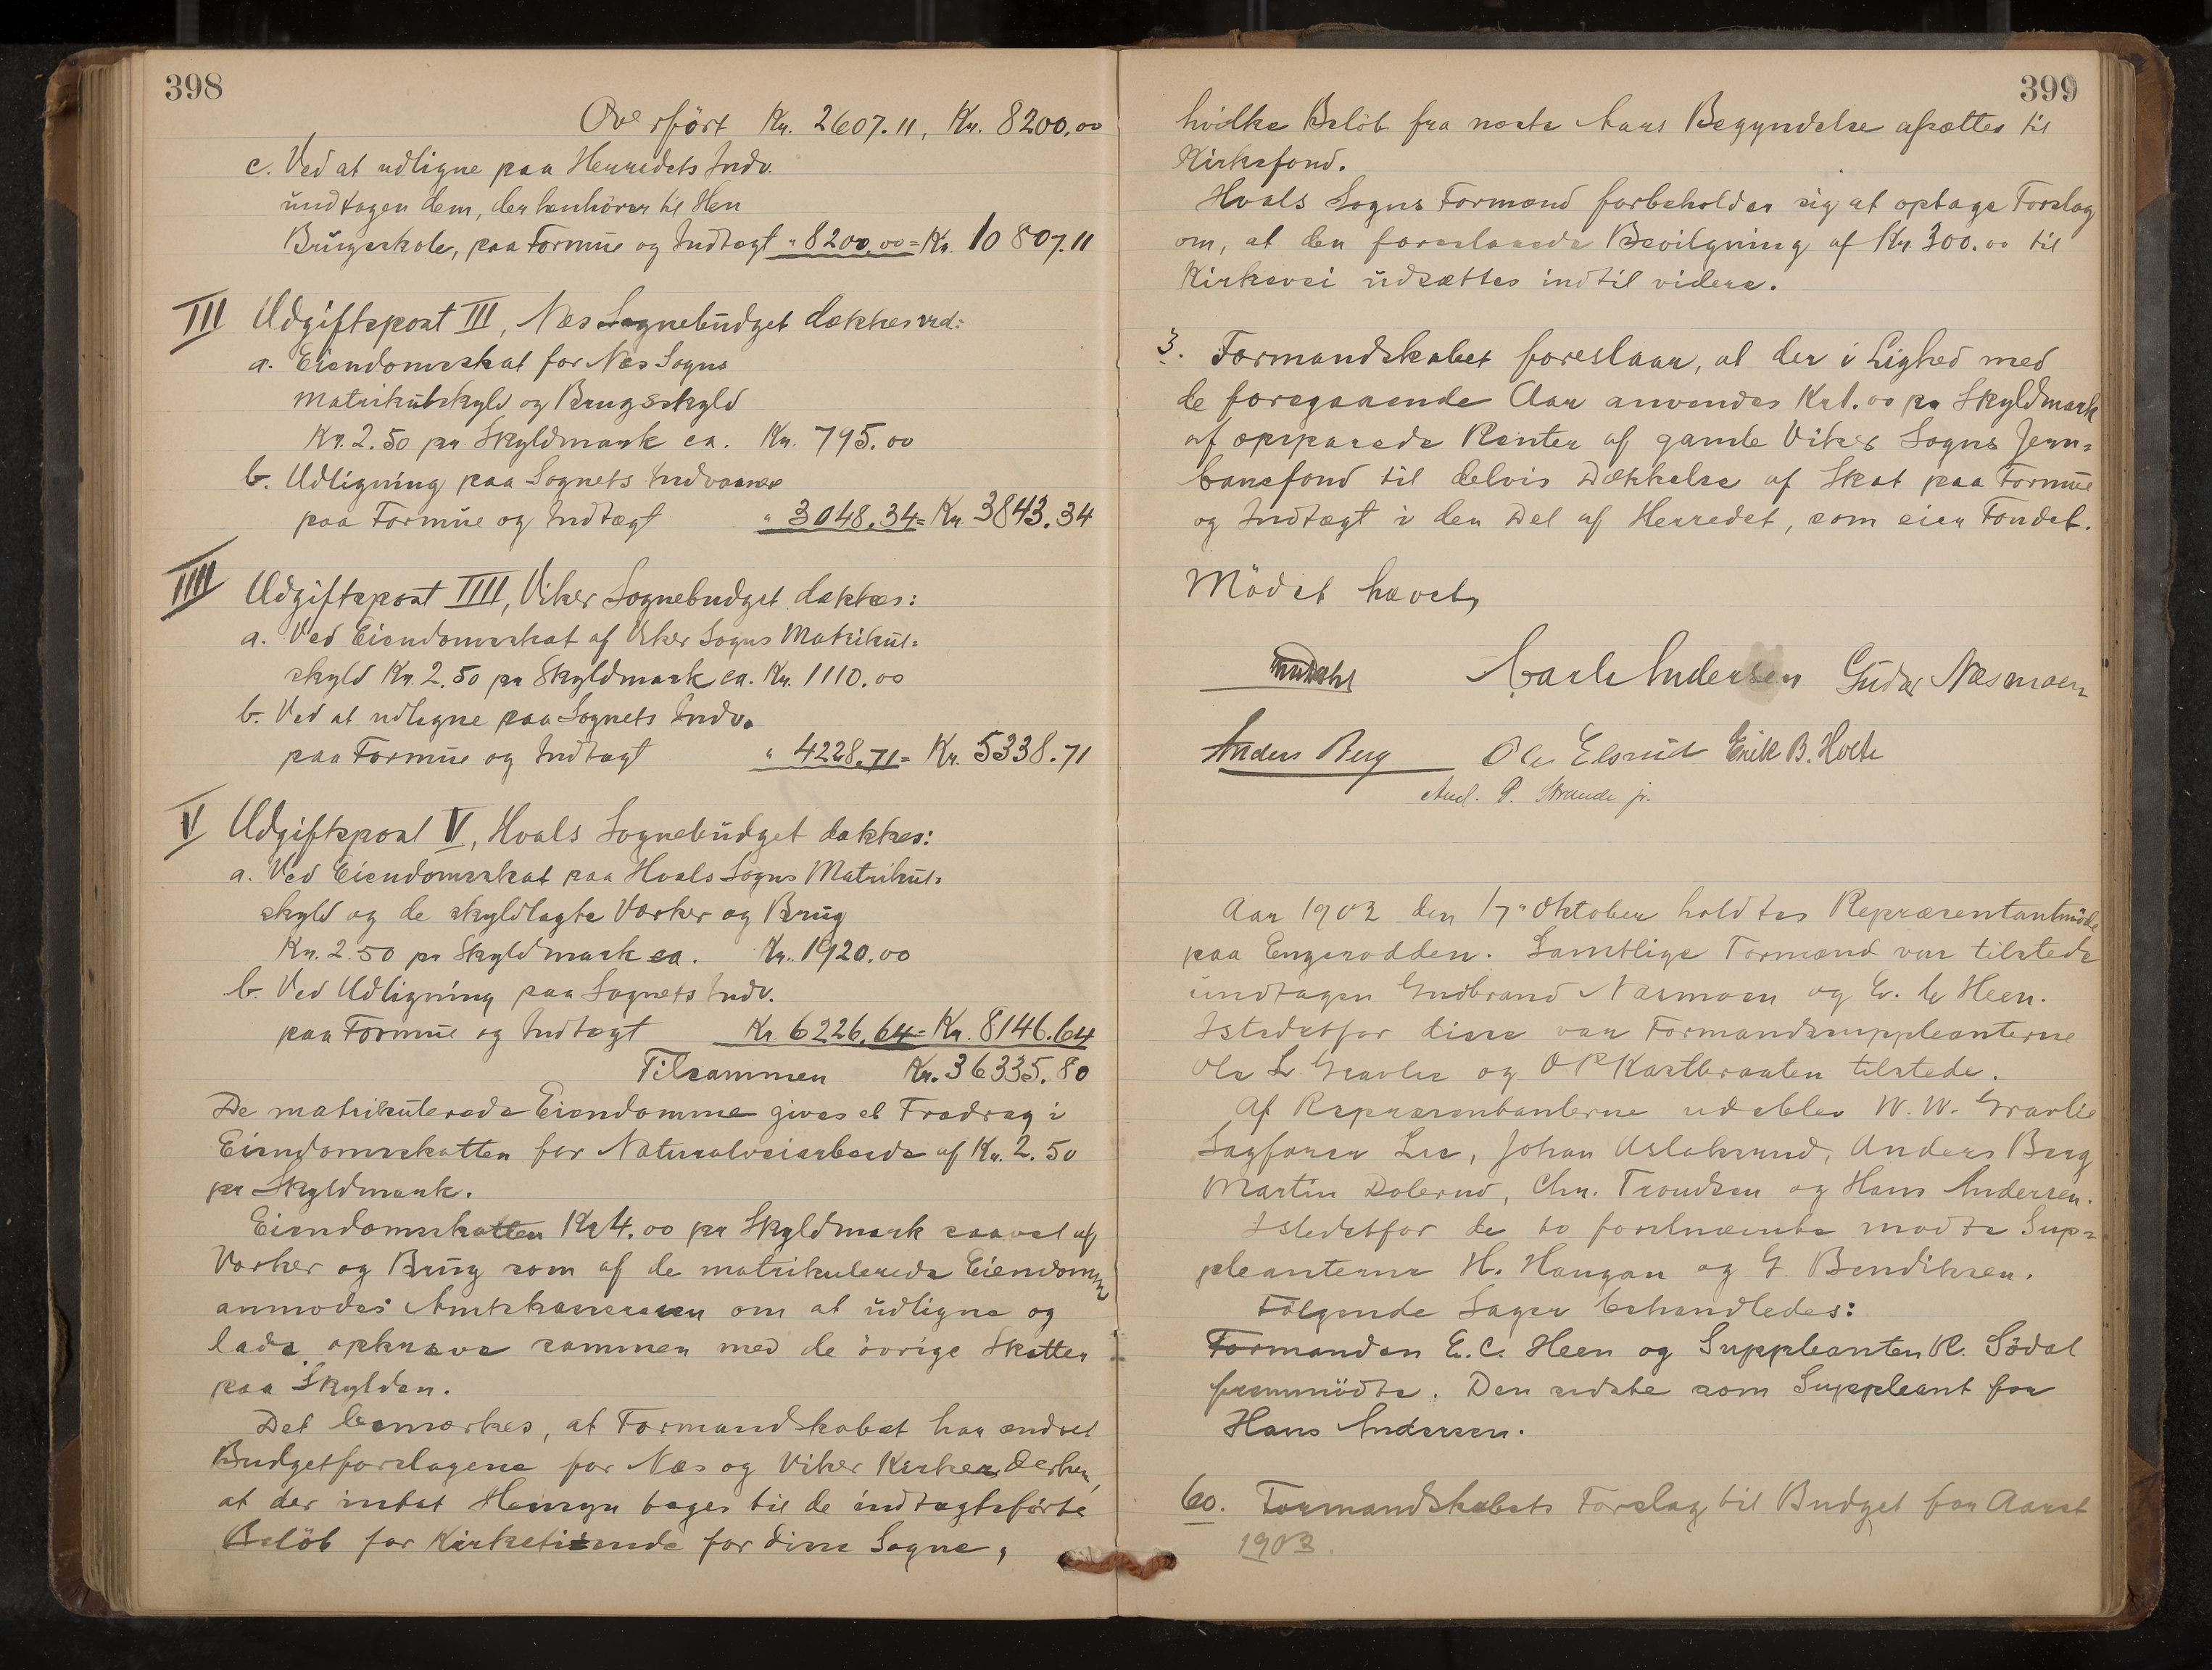 398
Overført Kr. 2607.11, Kr. 8200,00
c. Ved at udligne paa Herredets Indv.
undtagen dem, der henhörer til Hen
Brugsskole, paa Formue og Indtægt " 8200,00 = Kr. 10807.11
III Udgiftspost III, Næs Sognebudget dækkes ved:
a. Eiendomsskat for Næs Sogns
Matrikulskyld og Brugsskyld
Kr. 2.50 pr. Skyldmark ca. Kr. 795.00
b. Udligning paa Sognets Indvaanere
paa Formue og Indtægt " 3048.34 = Kr. 3843.34
IIII Udgiftspost IIII, Viker Sognebudget dækkes:
a. Ved Eiendomsskat af Viker Sogns Matrikul=
skyld Kr. 2.50 pr Skyldmark ca. Kr. 1110.00
b. Ved at udligne paa Sognets Indv.
paa Formue og Indtægt " 4228.71 = Kr. 5338.71
V Udgiftspost V, Hvals Sognebudget dækkes:
a. Ved Eiendomsskat paa Hvals Sogns Matrikul=
skyld og de skyldlagte Værker og Brug
Kr. 2.50 pr Skyldmark ca. Kr. 1920.00
b. Ved Udligning paa Sognets Indv.
paa Formue og Indtægt Kr. 6226.64 = Kr. 8146.64
Tilsammen Kr. 36335.80
De matrikulerede Eiendomme gives et Fradrag i
Eiendomsskatten for Naturalveiarbeide af Kr. 2.50
pr Skyldmark.
Eiendomsskatten Kr 4.00 pr Skyldmark saavel af
Værker og Brug som af de matrikulerede Eiendomme
anmodes Amtskassereren om at udligne og
lade opkræve sammen med de övrige Skatter
paa Skylden.
Det bemærkes, at Formandskabet har ændret
Budgetforslagene for Næs og Viker Kirker derhen,
at der intet Hensyn tages til de indtægtsførte
Belöb for Kirketiende for disse Sogne,
399
hvilke Belöb fra næste Aars Begyndelse afsættes til
Kirkefond.
Hvals Sogns Formænd forbeholder sig at optage Forslag
om, at den foreslaaede Bevilgning af Kr. 300.00 til
Kirkevei udsættes indtil videre.
3. Formandskabet foreslaar, at der i Lighed med
de foregaaende Aar anvendes Kr 1.00 pr Skyldmark
af opsparede Renter af gamle Viker Sogns Jern=
banefond til delvis Dækkelse af Skat paa Formue
og Indtægt i den Del af Herredet, som eier Fondet.
Mödet hævet,
Carl Andersen Gudbr Næsmoen
Anders Berg Ole Elsrud Erik B. Holte
And. P. Strande jr.
Aar 1902 den 17" Oktober holdtes Repræsentantmöde
paa Engerodden. Samtlige Formænd var tilstede
undtagen Gudbrand Næsmoen og E. C Heen.
Istedetfor disse var Formandssuppleanterne
Ole L Gravlie og O P Kastbraaten tilstede.
Af Repræsentanterne udeblev W. W. Gravlie
Sagförer Lie, Johan Aslaksrud, Anders Berg
Martin Dolerud, Chr. Trondsen og Hans Andersen.
Istedetfor de to förstnævnte mødte Sup=
pleanterne H. Haugan og G. Bendiksen.
Følgende Sager behandledes:
Formanden E. C. Heen og Suppleanten K. Södal
fremmödte. Den sidste som Suppleant for
Hans Andersen.
60. Formandskabets Forslag til Budget for Aaret
1903.